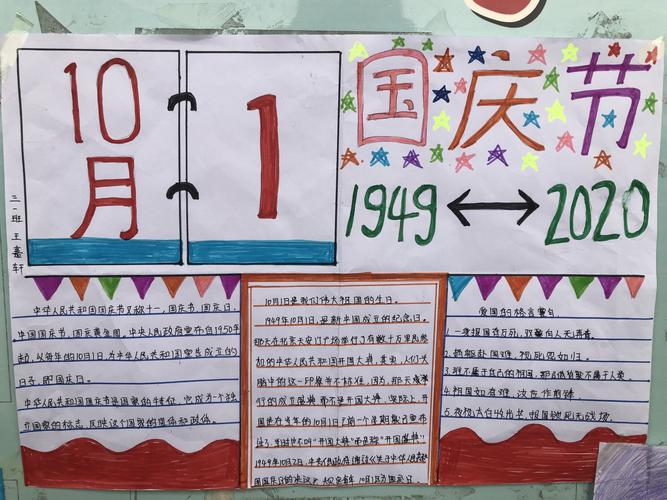 10
月
1
国庆节
1949 2020
三·一班 王嘉轩
中华人民共和国国庆节又称十一,国庆节,国庆日,
中国国庆节,国庆黄金周,中央人民政府宣布自1950年
起,以每年的10月1日,为中华人民共和国宣告成立的
日子,即国庆日。
中华人民共和国国庆节是国家的
国家的标志,反映这个国家的国体和政体。
10月1日是我们伟大祖国的生日。
1949年10月1日,是新中国成立的纪念日。
那天在北京天安门广场举行了有数十万军民参
加的中华人民共和国开国大典,其实,人们头
脑中的这一印象并不标准,因为,那天成举
行的成立盛典 都不是开国大典,实际上,开
国
1949年10月2日,中央人民政府通过《关于中华人民共和
国国庆日的决议》,规定每年10月1日为国庆日
爱国的格言警句
1.一身报国有万死,双鬓向人无再青。
2.捐躯赴国难,视死忽如归。
3.谁不属于自己的祖国,那么他就不属于人类。
4.祖国如有难,汝应作前锋。
5.夜视太白收光芒,报国欲死无战场。